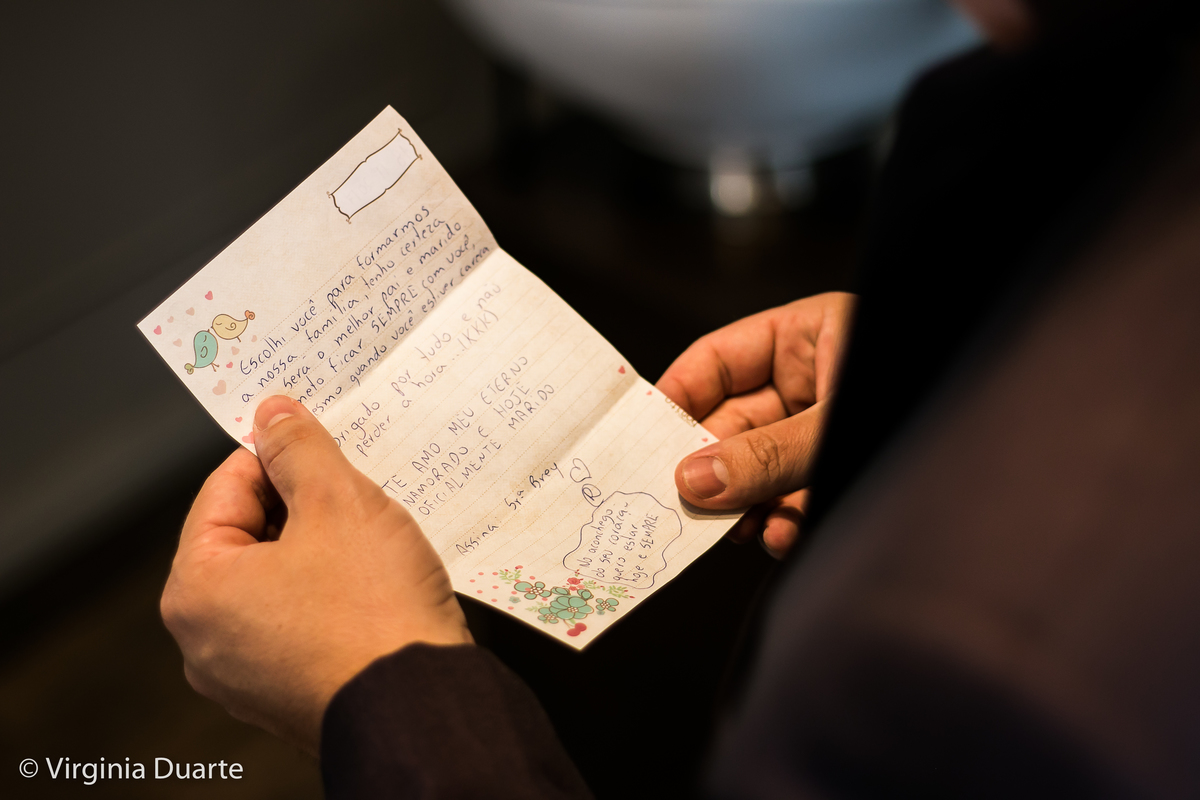 Escolhi você para formarmos
a nossa família, tenho certeza
será o melhor pai e marido
meto ficar SEMPRE com você,
esmo quando você estiver careca
brigado por tudo e não
perder a hora...(KKK)
TE AMO MEU ETERNO
NAMORADO E HOJE
OFICIALMENTE MARIDO
Assina: Sra Brey
No aconchego
do seu coração
quero estar
hoje e SEMPRE
© Virginia Duarte